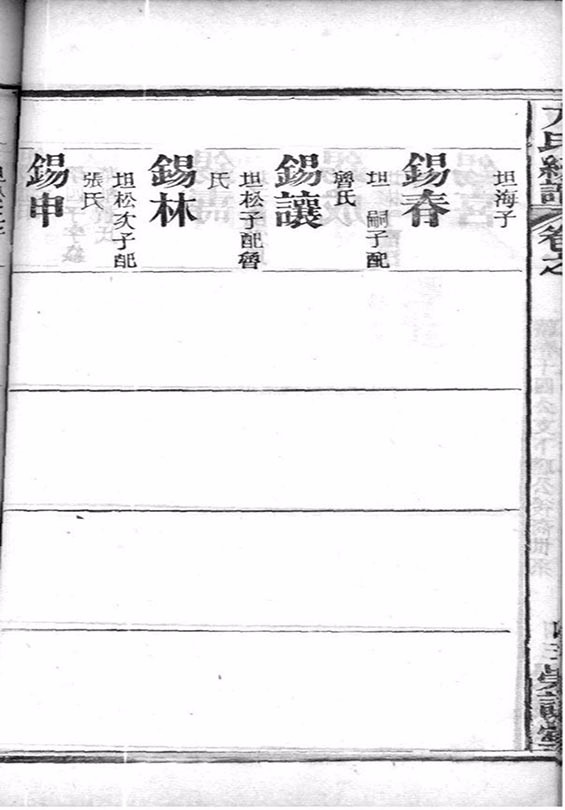 卷之
坦海子
錫春
坦 嗣子配
魯氏
錫讓
坦松子配魯
氏
錫林
坦松次子配
張氏
錫申